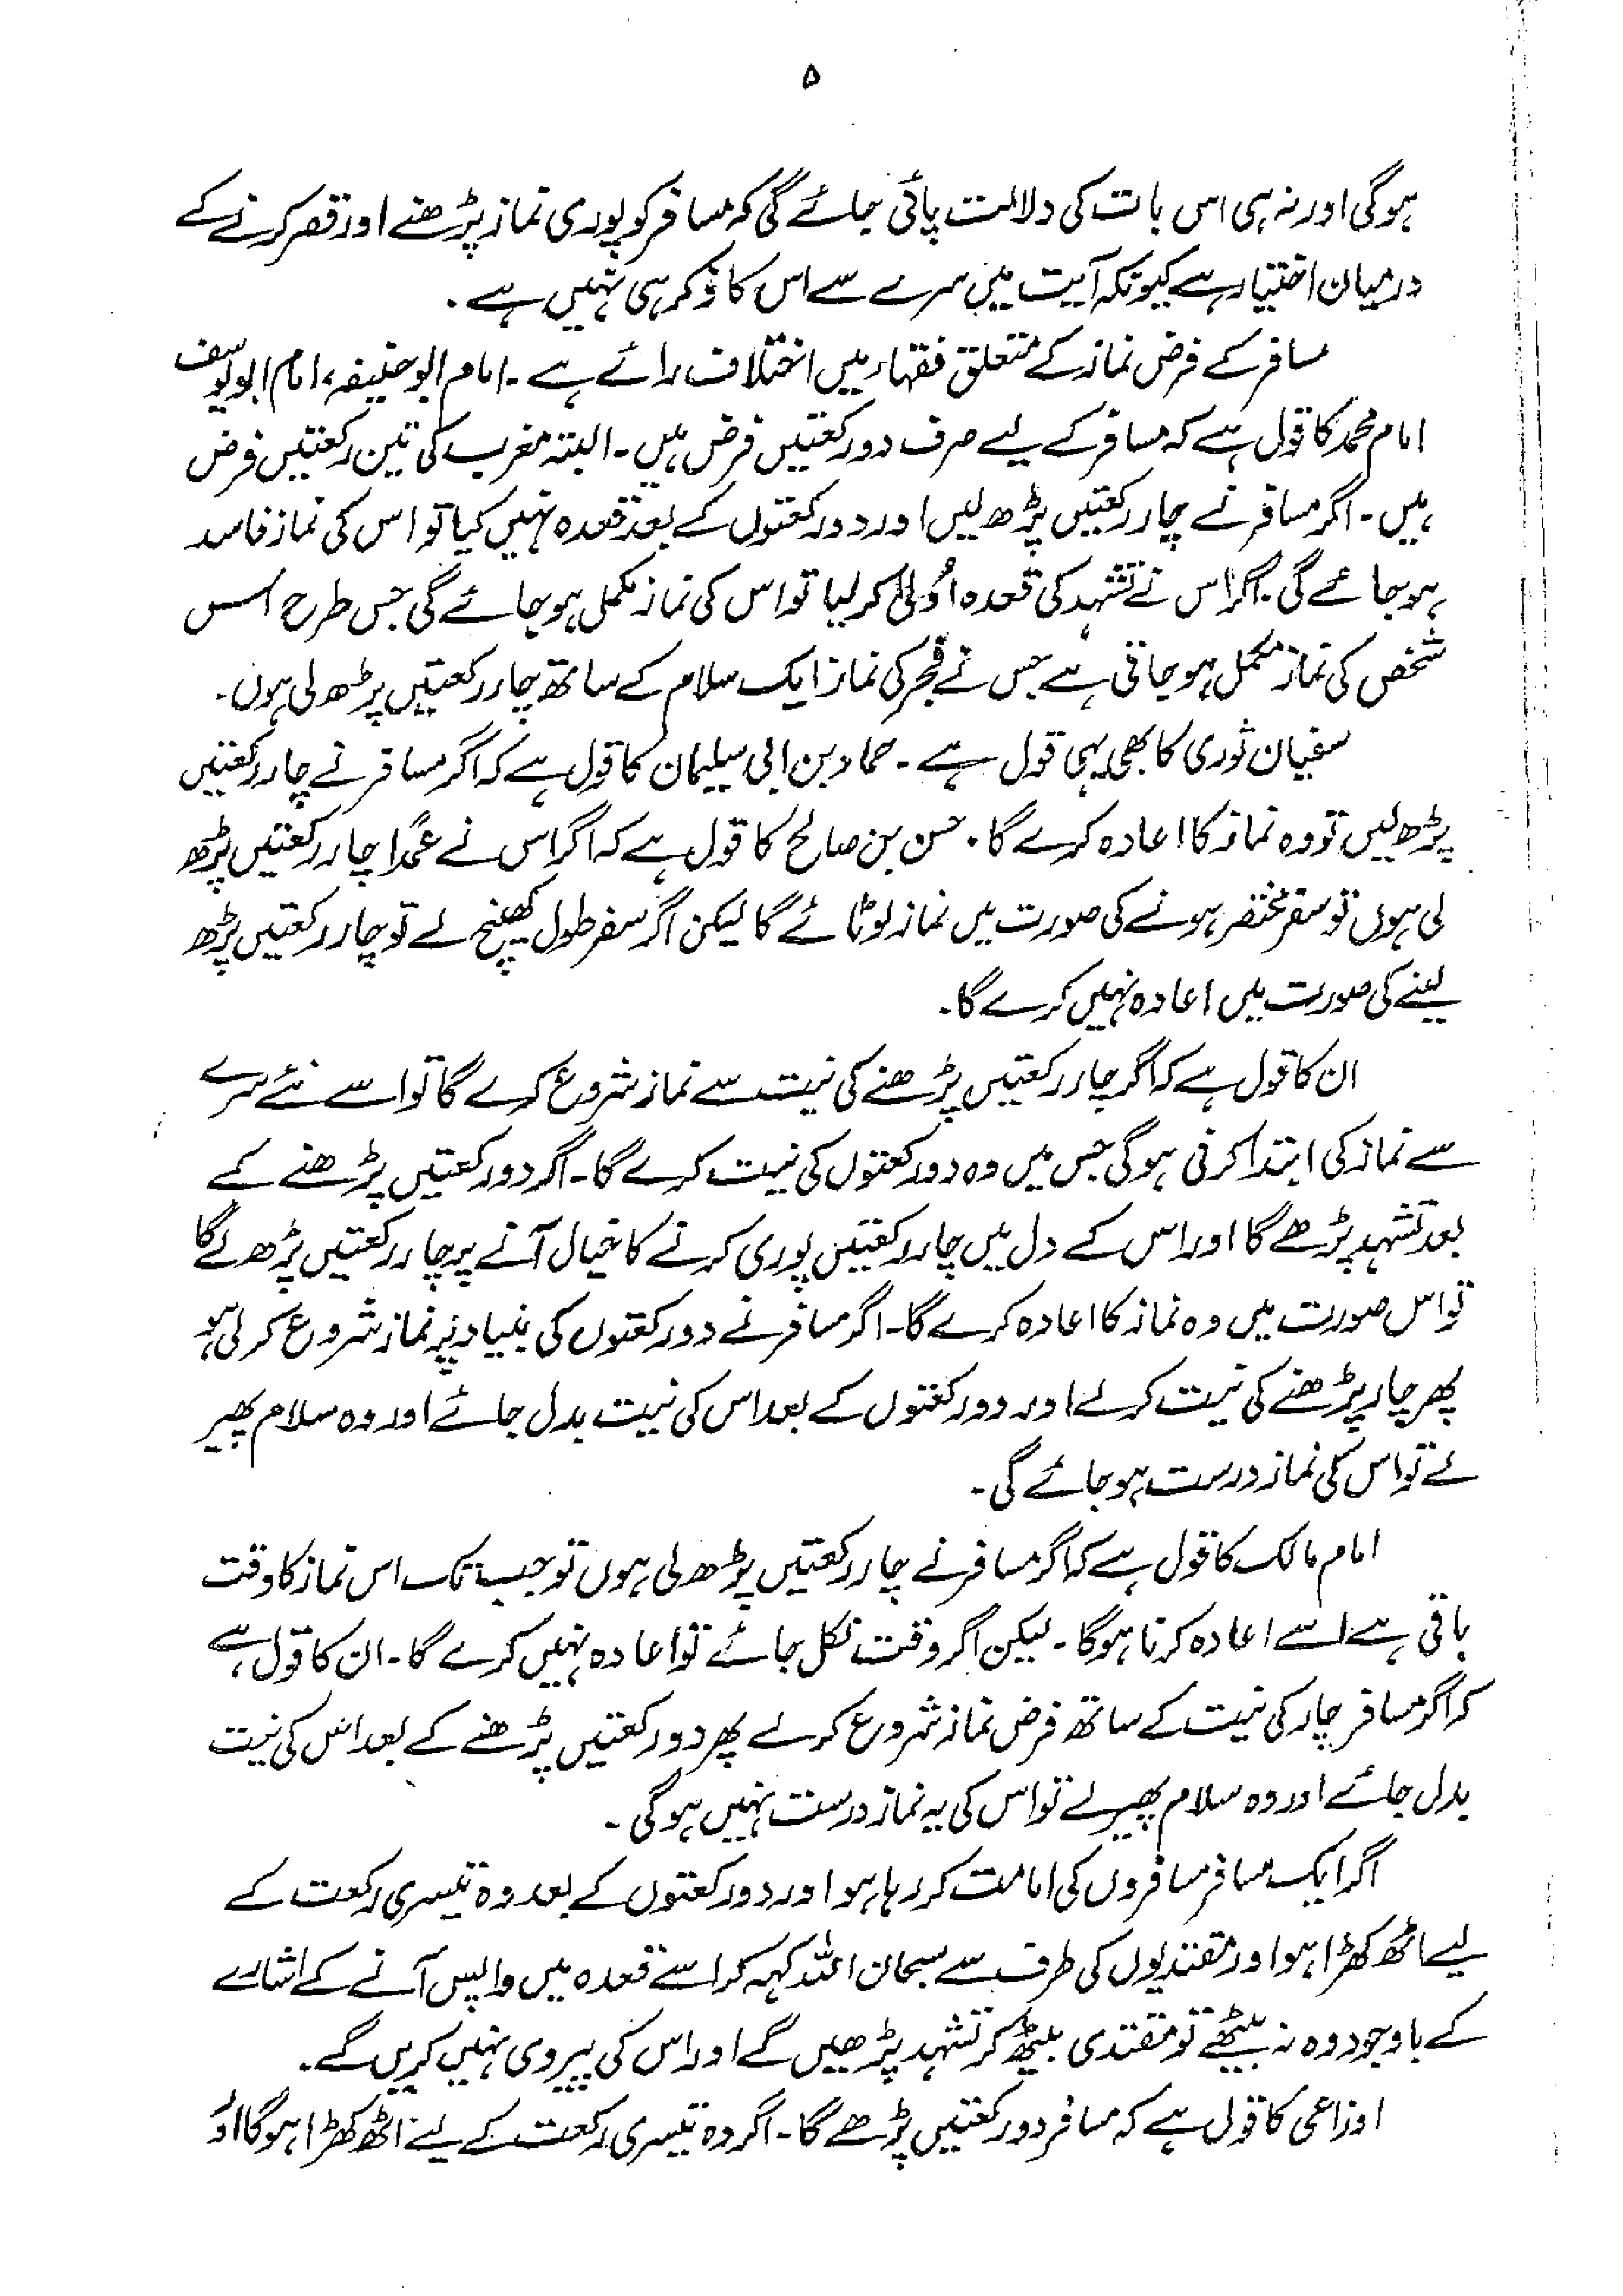 ۵
ہوگی اور نہ ہی اس بات کی دلالت پائی جائے گی کہ مسافر کو پوری نماز پڑھنے اور قصر کرنے کے
درمیان اختیار ہے کیونکہ آیت میں سرے سے اس کا ذکر ہی نہیں ہے ۔
مسافر کے فرض نماز کے متعلق فقہاء میں اختلاف رائے ہے ۔ امام ابو حنیفہ، امام ابو یوسف
امام محمد کا قول ہے کہ مسافر کے لیے صرف دو رکعتیں فرض ہیں ۔ البتہ مغرب کی تین رکعتیں فرض
ہیں ۔ اگر مسافر نے چار رکعتیں پڑھ لیں اور دو رکعتوں کے بعد قعدہ نہیں کیا تو اس کی نماز فاسد
ہو جائے گی ۔ اگر اس نے تشہد کی قعدہ اُولیٰ کر لیا تو اس کی نماز مکمل ہو جائے گی جس طرح اس
شخص کی نماز مکمل ہو جاتی ہے جس نے فجر کی نماز ایک سلام کے ساتھ چار رکعتیں پڑھ لی ہوں ۔
سفیان ثوری کا بھی یہی قول ہے ۔ حماد بن ابی سیلمان کا قول ہے کہ اگر مسافر نے چار رکعتیں
پڑھ لیں تو وہ نماز کا اعادہ کرے گا ۔ حسن بن صالح کا قول ہے کہ اگر اس نے عمدًا چار رکعتیں پڑھ
لی ہوں تو سفر مختصر ہونے کی صورت میں نماز لوٹائے گا لیکن اگر سفر طول کھینچ لے تو چار رکعتیں پڑھ
لینے کی صورت میں اعادہ نہیں کرے گا ۔
ان کا قول ہے کہ اگر چار رکعتیں پڑھنے کی نیت سے نماز شروع کرے گا تو اسے نئے سرے
سے نماز کی ابتدا کرنی ہوگی جس میں وہ دو رکعتوں کی نیت کرے گا ۔ اگر دو رکعتیں پڑھنے کے
بعد تشہد پڑھے گا اور اس کے دل میں چار رکعتیں پوری کرنے کا خیال آنے پر چار رکعتیں پڑھ لے گا
تو اس صورت میں وہ نماز کا اعادہ کرے گا ۔ اگر مسافر نے دو رکعتوں کی بنیاد پر نماز شروع کر لی ہو
پھر چار پڑھنے کی نیت کر لے اور دو رکعتوں کے بعد اس کی نیت بدل جائے اور وہ سلام پھیر
لے تو اس کی نماز درست ہو جائے گی ۔
امام مالک کا قول ہے کہ اگر مسافر نے چار رکعتیں پڑھ لی ہوں تو جب تک اس نماز کا وقت
باقی ہے اسے اعادہ کرنا ہوگا ۔ لیکن اگر وقت نکل جائے تو اعادہ نہیں کرے گا ۔ ان کا قول ہے
کہ اگر مسافر چار کی نیت کے ساتھ فرض نماز شروع کر لے پھر دو رکعتیں پڑھنے کے بعد اس کی نیت
بدل جائے اور وہ سلام پھیر لے تو اس کی یہ نماز درست نہیں ہوگی ۔
اگر ایک مسافر مسافروں کی امامت کر رہا ہو اور دو رکعتوں کے بعد وہ تیسری رکعت کے
لیے اٹھ کھڑا ہو اور مقتدیوں کی طرف سے سبحان اللہ کہہ کر اسے قعدہ میں واپس آنے کے اشارے
کے باوجود وہ نہ بیٹھے تو مقتدی بیٹھ کر تشہد پڑھیں گے اور اس کی پیروی نہیں کریں گے ۔
اوزاعی کا قول ہے کہ مسافر دو رکعتیں پڑھے گا ۔ اگر وہ تیسری رکعت کے لیے اٹھ کھڑا ہوگا اور